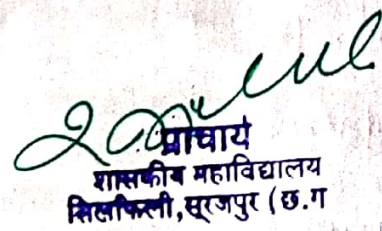 प्राचार्य
शासकीय महाविद्यालय
सिलफिली, सूरजपुर (छ.ग